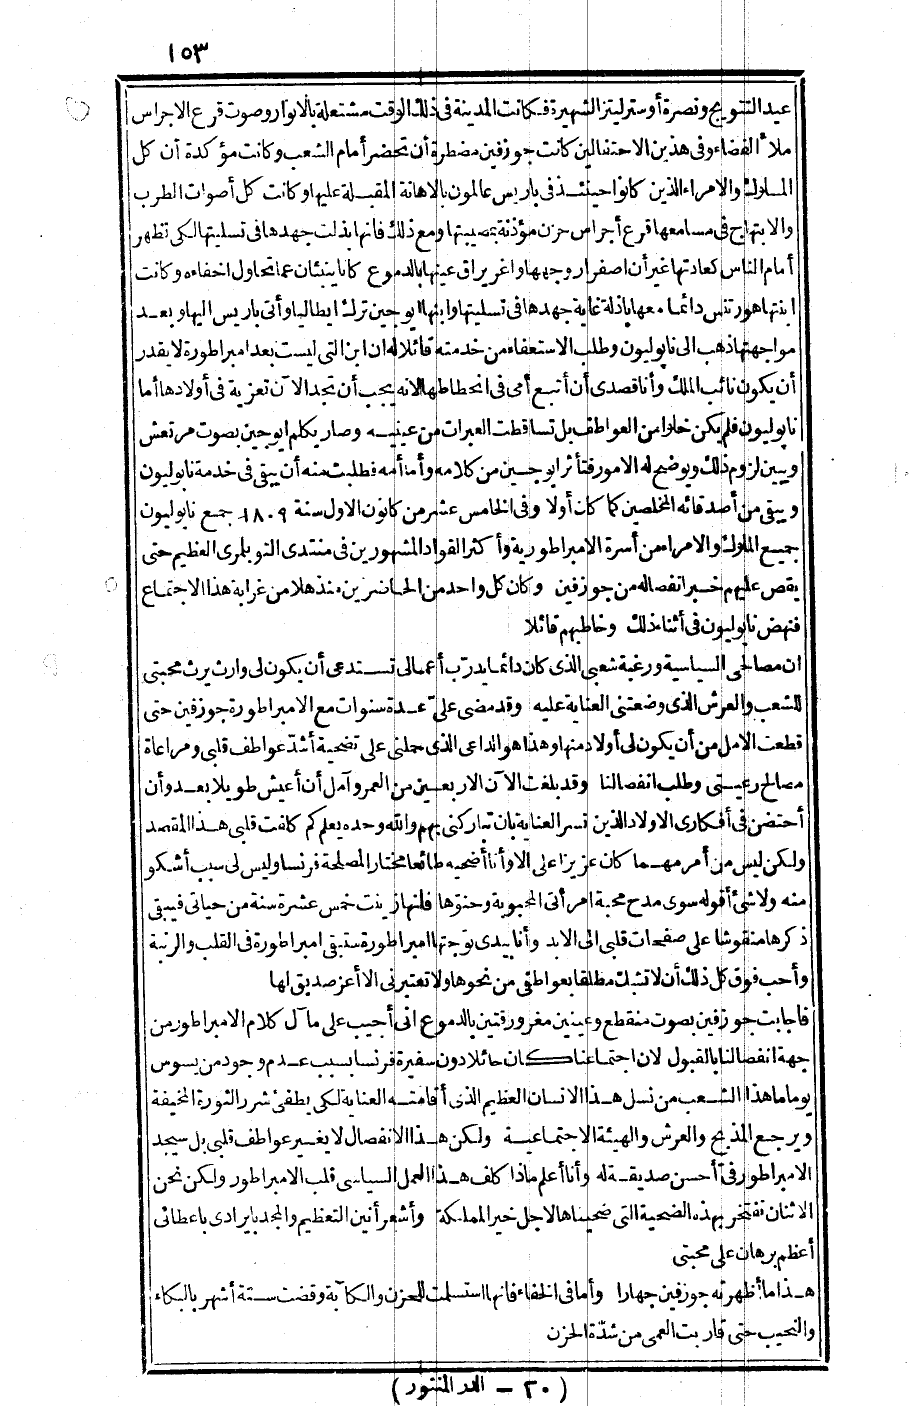 ١٥٣
عيد التتويج ونصرة أوسترليتز الشهيرة فكانت المدينة فى ذلك الوقت مشتعلة بالانوار وصوت قرع الاجراس
ملأ الفضاء وفى هذين الاحتفالين كانت جوزفين مضطرة أن تحضر أمام الشعب وكانت مؤكدة أن كل
الملوك والامراء الذين كانوا حينئذ فى باريس عالمون بالاهانة المقبلة عليها وكانت كل أصوات الطرب
والابتهاج فى مسامعها قرع أجراس حزن مؤذنة بمصيبتها ومع ذلك فانها بذلت جهدها فى تسليتها لكى تظهر
أمام الناس كعادتها غير أن اصفرار وجهها واغريراق عينيها بالدموع كانا ينبئان عما تحاول اخفاءه وكانت
ابنتها هورتنس دائما معها باذلة غاية جهدها فى تسليتها وابنها ايوجين ترك ايطاليا وأتى باريس اليها وبعد
مواجهتها ذهب الى نابوليون وطلب الاستعفاء من خدمته قائلا له ان ابن التى ليست بعد امبراطورة لا يقدر
أن يكون نائب الملك وأنا قصدى أن أتبع أمى فى انحطاطها لانه يجب أن تجد الآن تعزية فى أولادها أما
نابوليون فلم يكن خاليا من العواطف بل تساقطت العبرات من عينيه وصار يكلم ايوجين بصوت مرتعش
ويبين لزوم ذلك ويوضح له الامور فتأثر ايوجين من كلامه وأما أمه فطلبت منه أن يبقى فى خدمة نابوليون
ويبقى من أصدقائه المخلصين كما كان أولا وفى الخامس عشر من كانون الاول سنة ١٨٠٩ جمع نابوليون
جميع الملوك والامراء من أسرة الامبراطورية وأكثر القواد المشهورين فى منتدى التويلرى العظيم حتى
يقص عليهم خبر انفصاله من جوزفين وكان كل واحد من الحاضرين منذهلا من غرابة هذا الاجتماع
فنهض نابوليون فى أثناء ذلك وخاطبهم قائلا
ان مصالحى السياسية ورغبة شعبى الذى كان دائما يدرب أعمالى تستدعى أن يكون لى وارث يرث محبتى
للشعب والعرش الذى وضعتنى العناية عليه وقد مضى علىّ عدة سنوات مع الامبراطورة جوزفين حتى
قطعت الامل من أن يكون لى أولاد منها وهذا هو الداعى الذى حملنى على تضحية أشد عواطف قلبى ومراعاة
مصالح رعيتى وطلب انفصالنا وقد بلغت الآن الاربعين من العمر وآمل أن أعيش طويلا بعد وأن
أحتضن فى أفكارى الاولاد الذين تسر العناية بان تباركنى بهم والله وحده يعلم كم كلفت قلبى هذا المقصد
ولكن ليس من أمر مهما كان عزيزا على الا وأنا أضحيه طائعا مختارا لمصلحة فرنسا وليس لى سبب أشكو
منه ولا شئ أقوله سوى مدح محبة امرأتى المحبوبة وحنوها فلنها زينت خمس عشرة سنة من حياتى فيبقى
ذكرها منقوشا على صفحات قلبى الى الابد وأنا بيدى توجتها امبراطورة ستبقى امبراطورة فى القلب والرتبة
وأحب فوق كل ذلك أن لا تشك مطلقا بعواطفى من نحوها ولا تعتبرنى الا أعز صديق لها
فاجابت جوزفين بصوت منقطع وعينين مغرورقتين بالدموع انى أجيب على مآل كلام الامبراطور من
جهة انفصالنا بالقبول لان اجتماعنا كان حائلا دون سفيرة فرنسا بسبب عدم وجود من يسوس
يوما ما هذا الشعب من نسل هذا الانسان العظيم الذى أقامته العناية لكى يطفئ شرر الثورة المخيفة
ويرجع المذبح والعرش والهيئة الاجتماعية ولكن هذا الانفصال لا يغير عواطف قلبى بل سيجد
الامبراطور فىّ أحسن صديقة له وأنا أعلم ماذا كلف هذا العمل السياسى قلب الامبراطور ولكن نحن
الاثنان نفتخر بهذه الضحية التى ضحيناها لاجل خير المملكة وأشعر أنين التعظيم والمجد بايرادى باعطائى
أعظم برهان على محبتى
هذا ما أظهرته جوزفين جهارا وأما فى الخفاء فانها استسلمت للحزن والكآبة وقضت ستة أشهر بالبكاء
والنحيب حتى قاربت العمى من شدّة الحزن
(٢٠ – الدر المنثور)